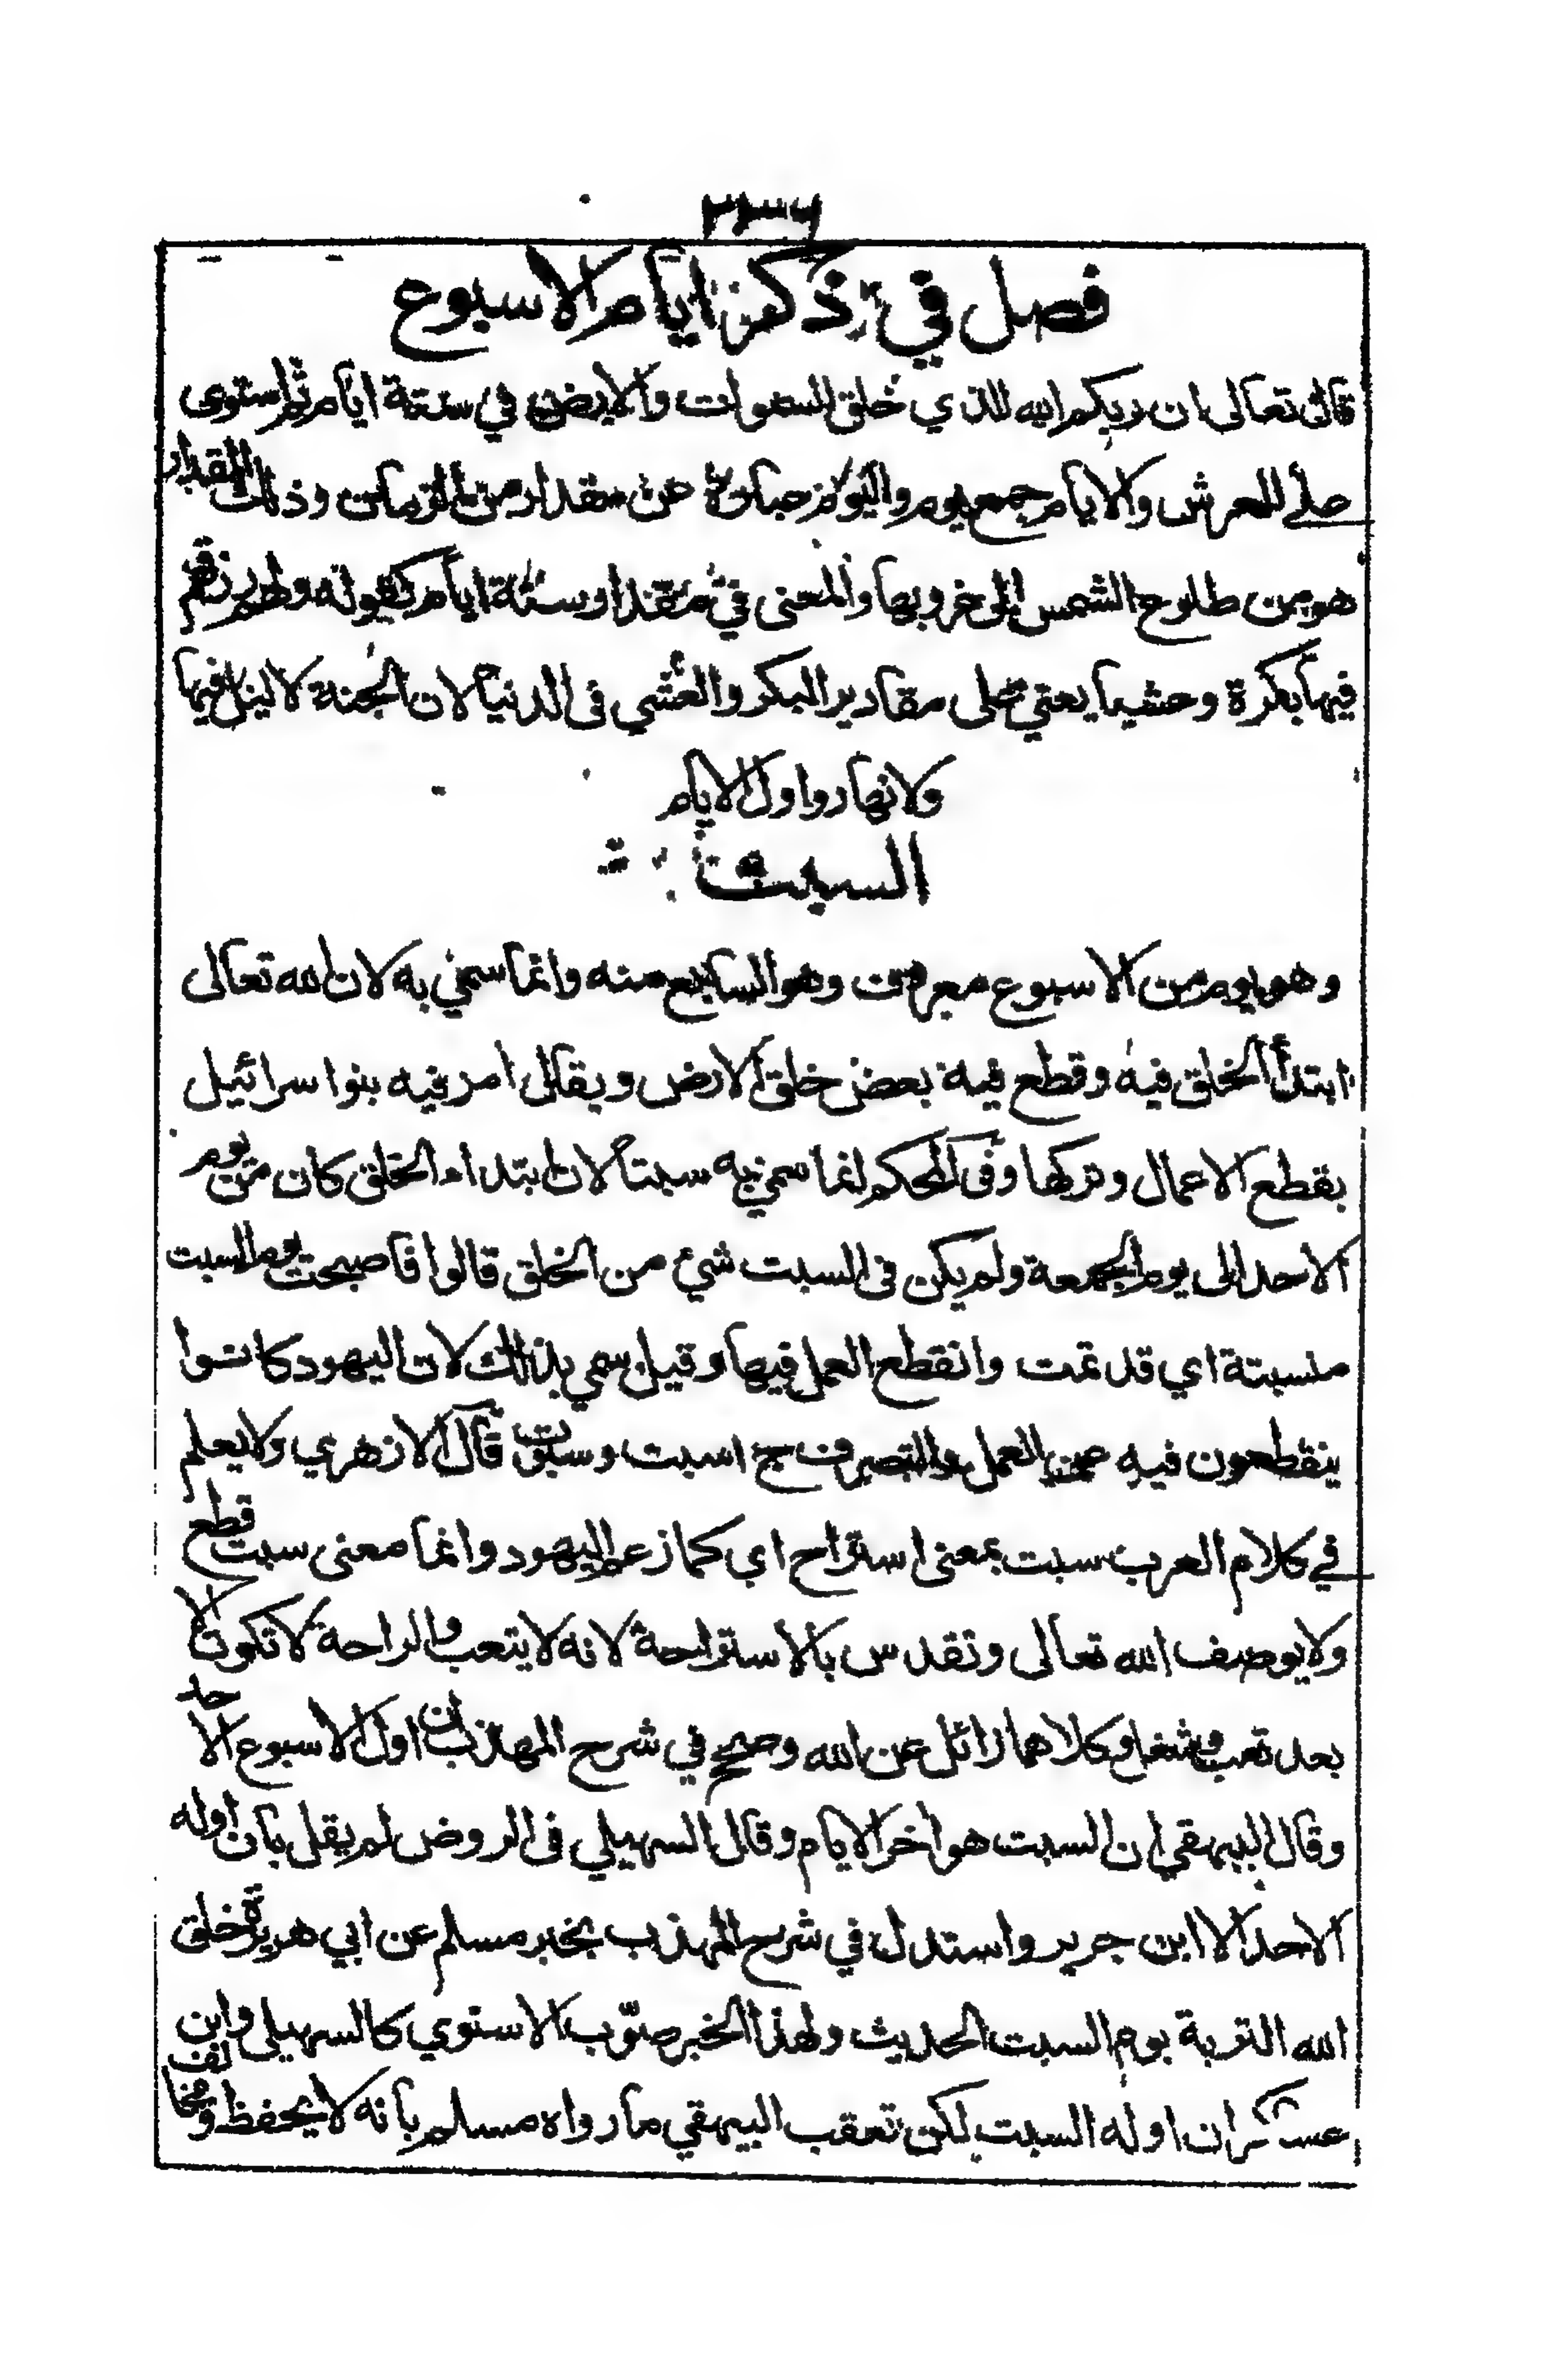 ٢٣٦
فصل في ذكر ايام الاسبوع
قال تعالى ان ربكم الله الذي خلق السموات والارض في ستة ايام ثم استوى
على العرش والايام جمع يوم واليوم عبارة عن مقدار من الزمان وذلك المقدار
هو من طلوع الشمس الى غروبها والمعنى في مقدار ستة ايام كقوله ولهم رزقهم
فيها بكرة وعشيا يعني على مقادير البكر والعشي في الدنيا لان الجنة لا ليل فيها
ولا نهار واول الايام
السبت
وهو يوم من الاسبوع معروف وهو السابع منه وانما سمي به لان الله تعالى
ابتدأ الخلق فيه وقطع فيه بعض خلق الارض ويقال امر فيه بنوا سرائيل
بقطع الاعمال وتركها وفي المحكم انما سمي به سبتا لان ابتداء الخلق كان من يوم
الاحد الى يوم الجمعة ولم يكن في السبت شيء من الخلق قالوا فاصبحت يوم السبت
منسبتة اي قد تمت وانقطع العمل فيها وقيل سمي بذلك لان اليهود كانوا
ينقطعون فيه عن العمل والتصرف ج اسبت وسبوت قال الازهري ولا يعلم
في كلام العرب سبت بمعنى استراح اي كما زعم اليهود وانما معنى سبت قطع
ولا يوصف الله تعالى وتقدس بالاستراحة لانه لا يتعب والراحة لا تكون الا
بعد تعب وشغل وكلاهما زائل عن الله وصحح في شرح المهذب ان اول الاسبوع الاحد
وقال البيهقي ان السبت هو اخر الايام وقال السهيلي في الروض لم يقل بان اوله
الاحد الا ابن جرير واستدل في شرح المهذب بخبر مسلم عن ابي هريرة خلق
الله التربة يوم السبت الحديث ولهذا الخبر صوّب الاسنوي كالسهيلي وابن
عساكر ان اوله السبت لكن تعقب البيهقي ما رواه مسلم بانه لا يحفظ ومخالف